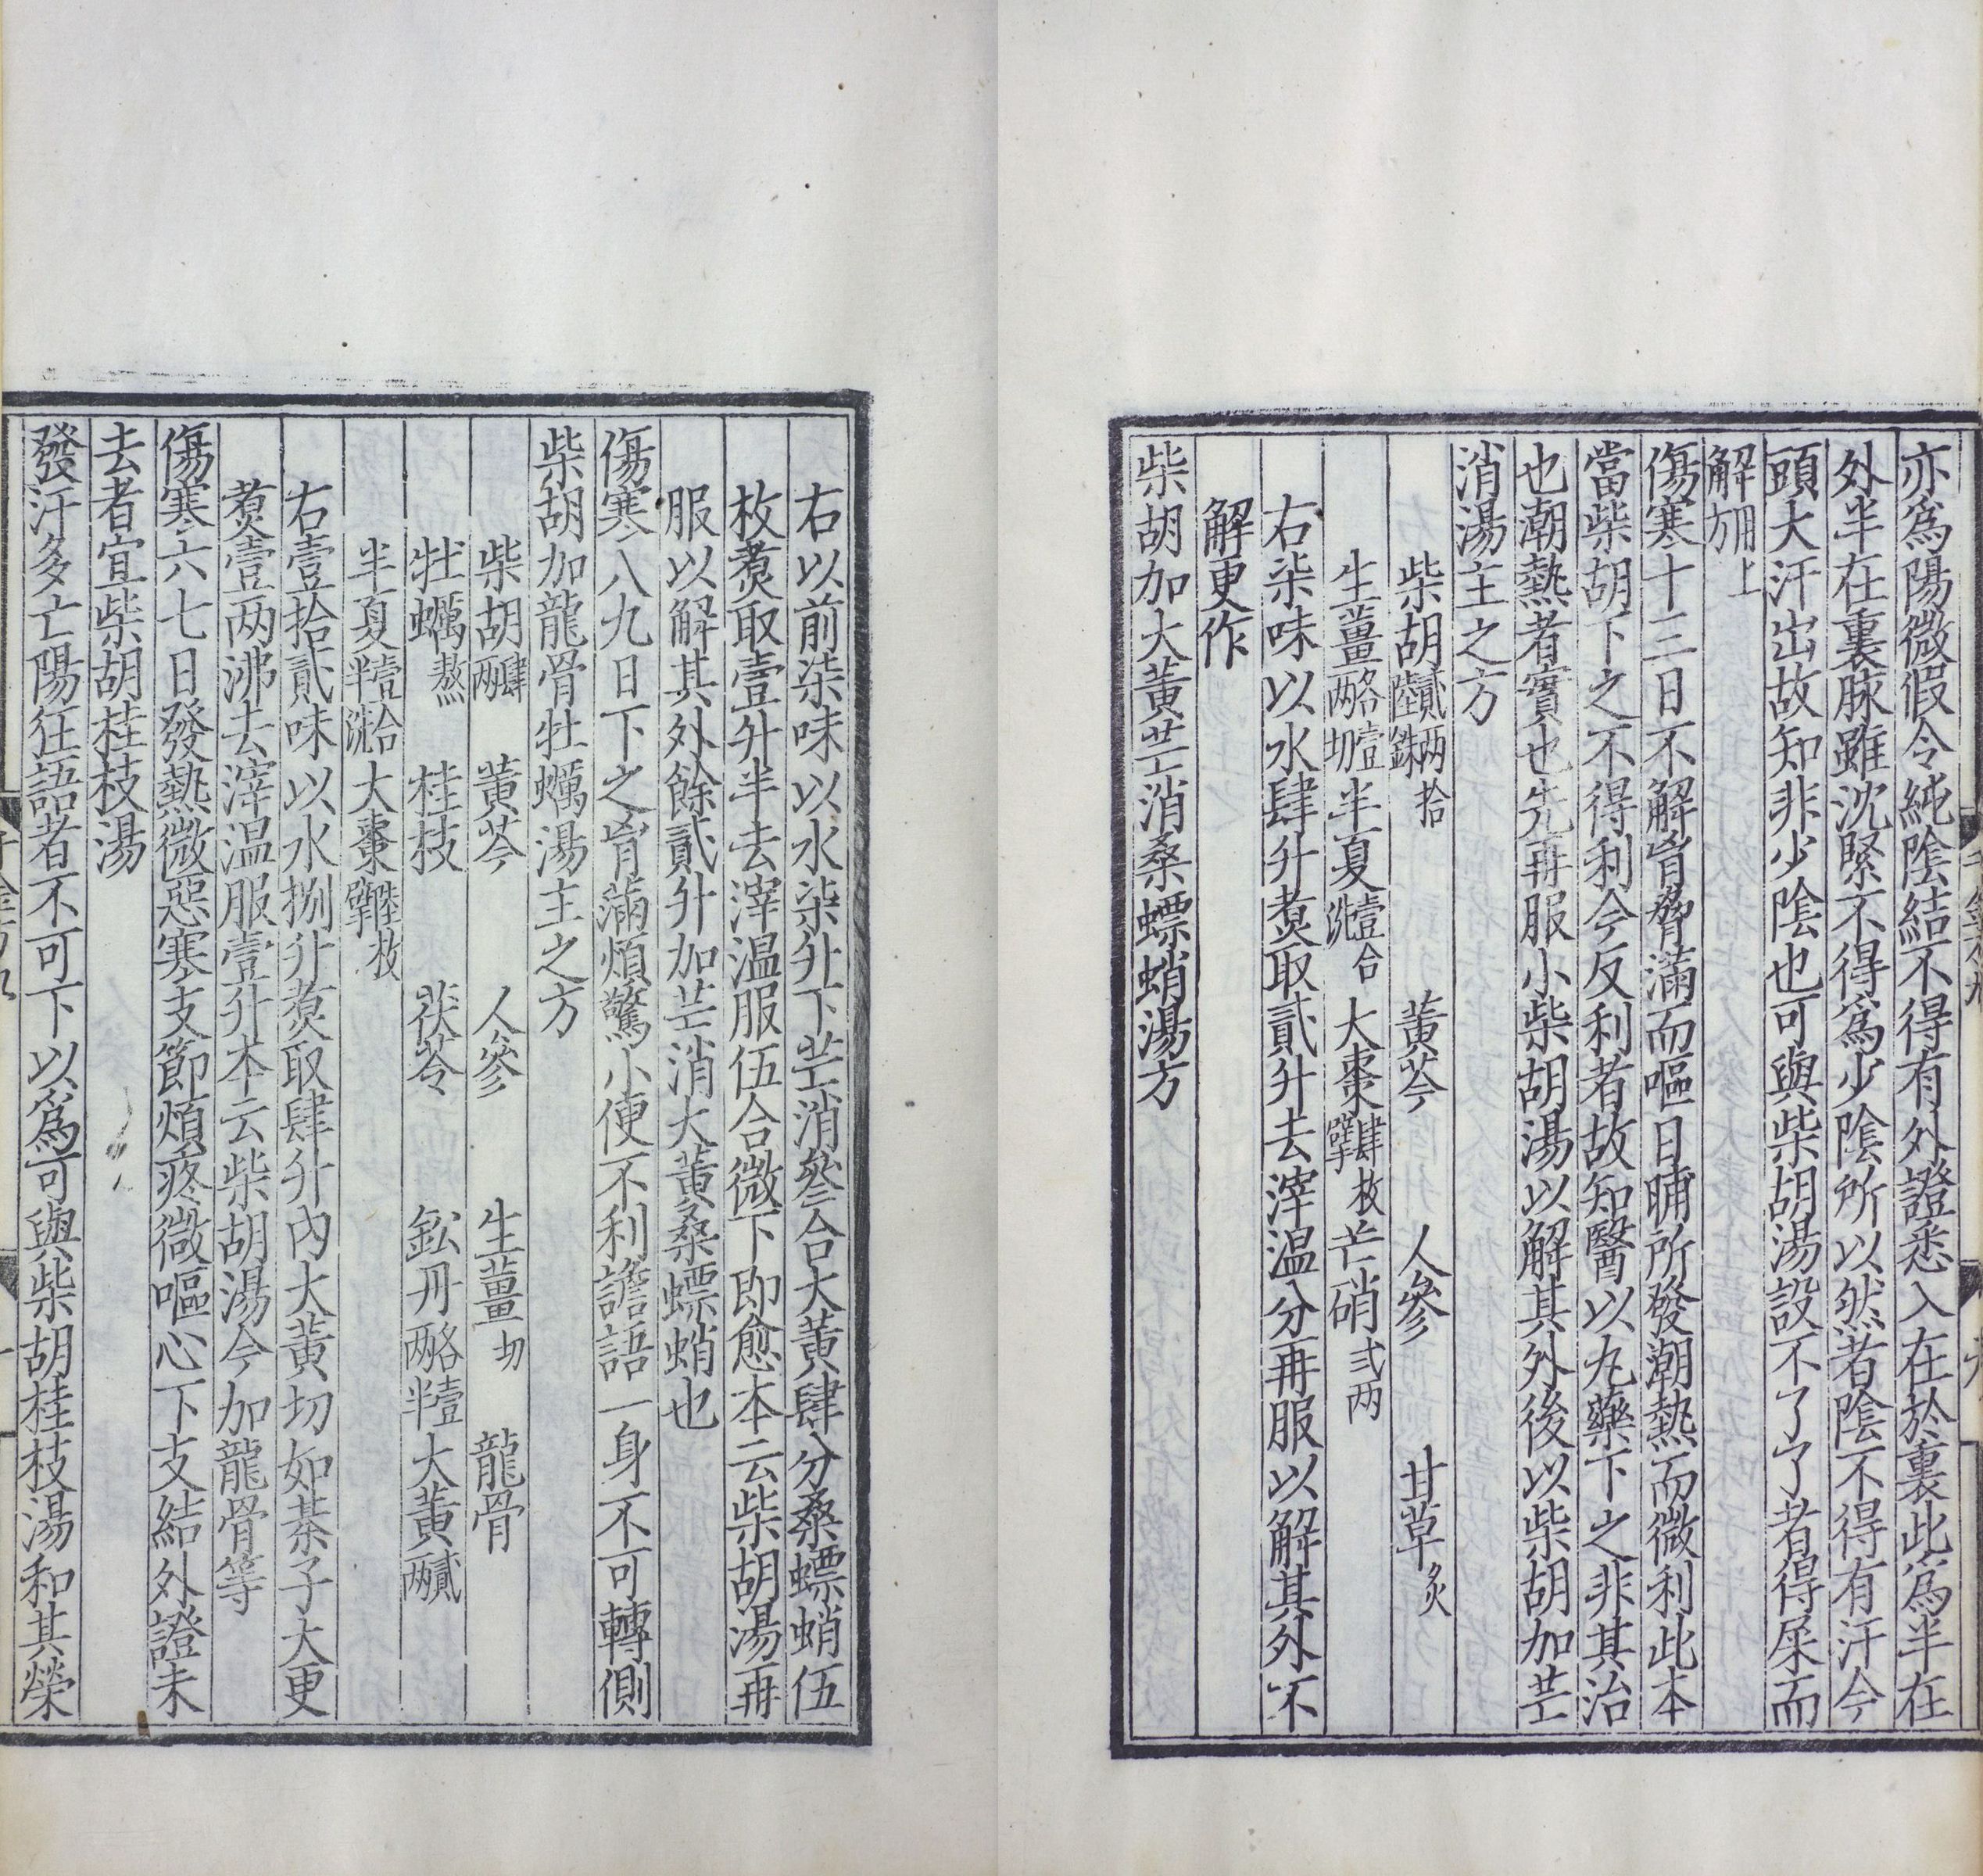 亦爲陽微假令純陰結不得有外證悉入在於裏此爲半在
外半在裏脉雖沈緊不得爲少陰所以然者陰不得有汗今
頭大汗出故知非少陰也可與柴胡湯設不了了者得屎而
解用上方
傷寒十三日不解胷脅滿而嘔日晡所發潮熱而微利此本
當柴胡下之不得利今反利者故知醫以丸藥下之非其治
也潮熱者實也先再服小柴胡湯以解其外後以柴胡加芒
消湯主之方
柴胡貳兩拾陸銖 黃芩 人參 甘草炙
生薑壹兩切 半夏壹合洗 大棗肆枚擘 芒硝弍兩
右柒味以水肆升煑取貳升去滓温分再服以解其外不
解更作
柴胡加大黃芒消桑螵蛸湯方
右以前柒味以水柒升下芒消叄合大黃肆分桑螵蛸伍
枚煑取壹升半去滓温服伍合微下即愈本云柴胡湯再
服以解其外餘貳升加芒消大黃桑螵蛸也
傷寒八九日下之胷滿煩驚小便不利譫語一身不可轉側
柴胡加龍骨牡蠣湯主之方
柴胡肆兩 黃芩 人參 生薑切 龍骨
牡蠣熬 桂枝 茯苓 鈆丹各壹兩半 大黃貳兩
半夏壹合半洗 大棗陸枚擘
右壹拾貳味以水捌升煑取肆升內大黃切如棊子大更
煑壹兩沸去滓温服壹升本云柴胡湯今加龍骨等
傷寒六七日發熱微惡寒支節煩疼微嘔心下支結外證未
去者宜柴胡桂枝湯
發汗多亡陽狂語者不可下以爲可與柴胡桂枝湯和其榮